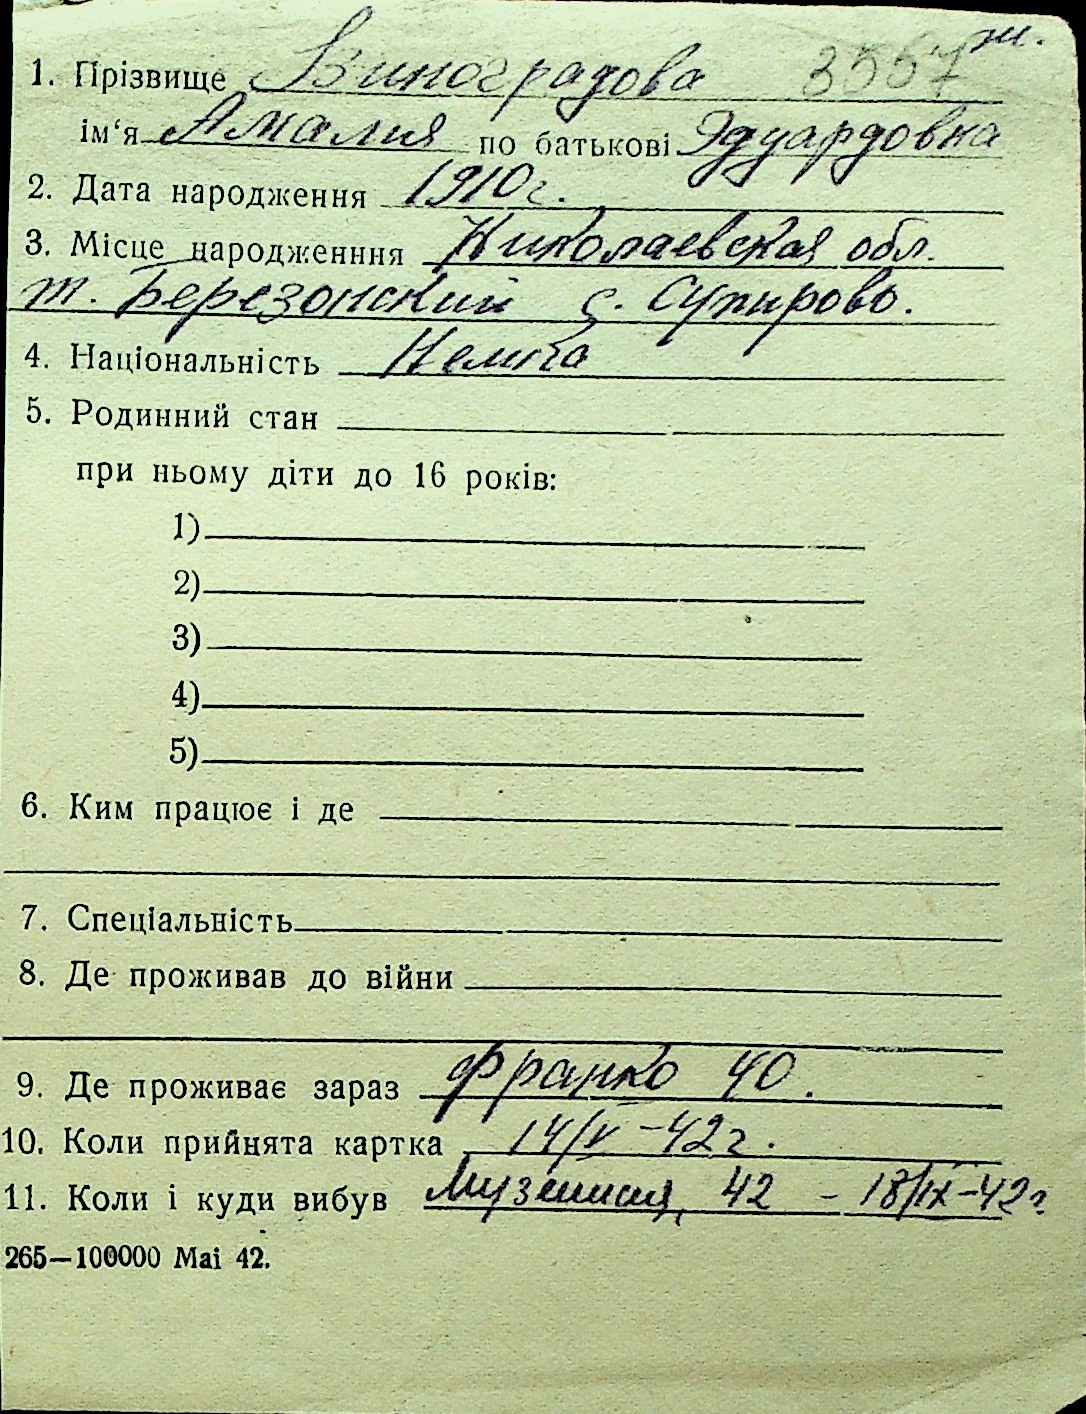 ж.
1. Прізвище Виноградова 3557
ім‘я Амалия по батькові Эдуардовна
2. Дата народження 1910г.
3. Місце народженння Николаевская обл.
т. Березонский с. Сутирово.
4. Національність Немка
5. Родинний стан
при ньому діти до 16 років:
1)
2)
3)
4)
5)
6. Ким працює і де
7. Спеціальність
8. Де проживав до війни
9. Де проживає зараз Франко 40.
10. Коли прийнята картка 14/V –42г.
11. Коли і куди вибув 42 – 18/IX–42г
265—100000 Маі 42.